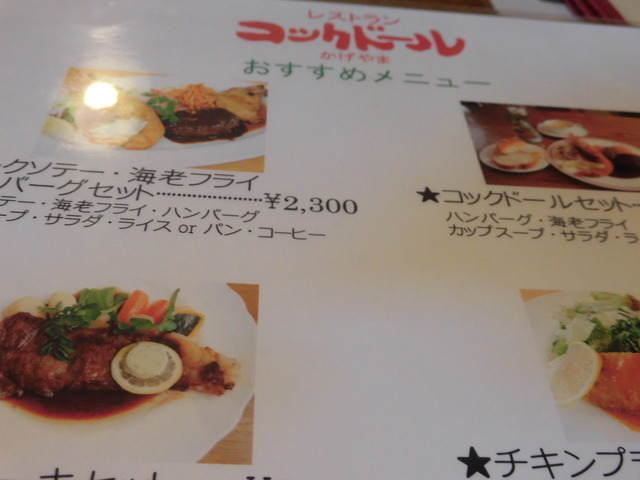 レストラン
コックドール
かげやま
おすすめメニュー
ークソテー・海老フライ
バーグセット……………………¥2,300
テー・海老フライ・ハンバーグ
ープ・サラダ・ライス or パン・コーヒー
★コックドールセット…
ハンバーグ・海老フライ
カップスープ・サラダ・ラ
★チキンプラ